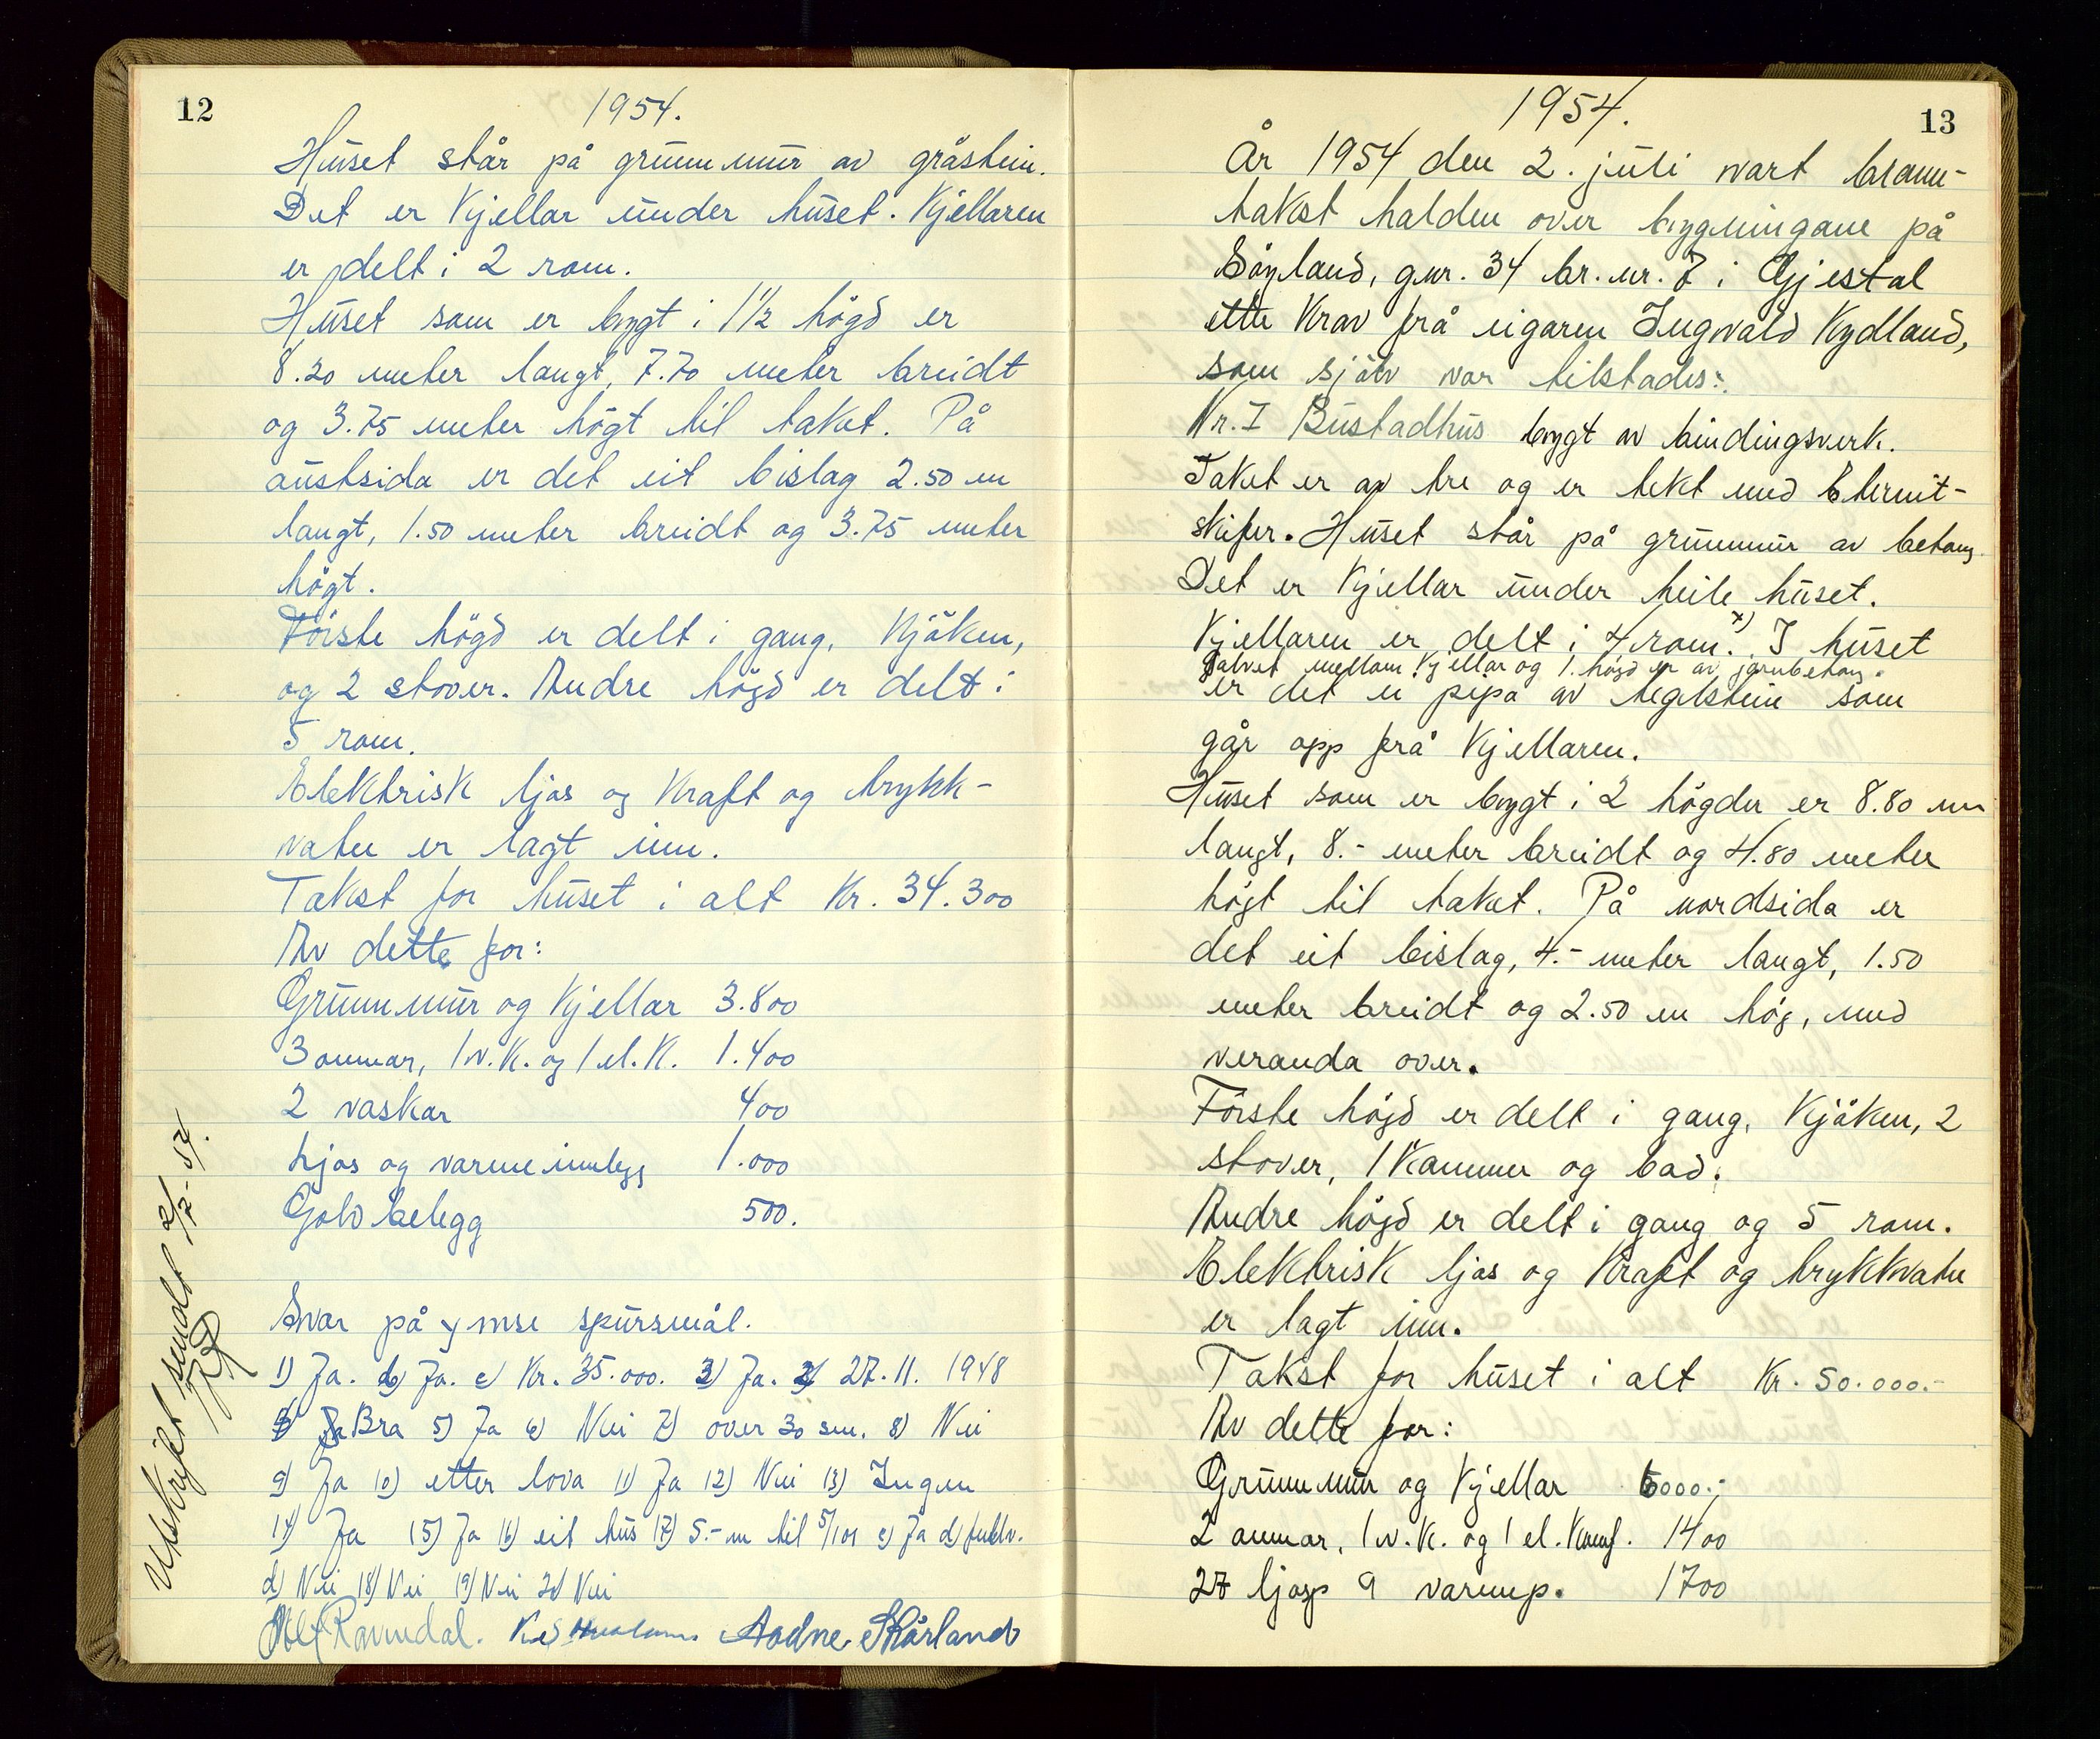 12
1954.
Huset står på grunnmur av gråstein.
Det er kjellar under huset. Kjellaren
er delt i 2 rom.
Huset som er bygt i 1 1/2 högd er
8.20 meter langt, 7.70 meter breidt
og 3.75 meter högt til taket. På
austsida er det eit bislag 2.50 m
langt, 1.50 meter breidt og 3.75 meter
högt.
Förste högd er delt i gang, kjöken,
og 2 stover. Andre högd er delt i
5 rom.
Elektrisk ljos og kraft og trykk-
vatn er lagt inn.
Takst for huset i alt kr. 34.300
Av dette for:
Grunnmur og kjellar 3.800
3 omnar, 1 v.k. og 1 el.k. 1.400
2 vaskar 400
Ljos og varmeinnlegg 1.000
Golvbelegg 500.
Svar på ymse spursmål.
1) Ja. b) Ja. c) Kr. 35.000. 2) Ja. 3) 27.11. 1948
4) Bra 5) Ja 6) Nei 7) over 30 sm. 8) Nei
9) Ja 10) etter lova 11) Ja 12) Nei 13) Ingen
14) Ja 15) Ja 16) eit hus 17) 5.- m til 5/101 c) Ja d)
d) Nei 18) Nei 19) Nei 20) Nei
Alf Ravndal. Aadne Skårland
Utskrift sendt 2/7-54.
13
1954.
År 1954 den 2. juli vart brann-
takst halden over bygningane på
Söyland, gnr. 34 br.nr. 7 i Gjestal
ette krav frå eigaren Ingvald Kydland,
som sjölv var tilstades:
Nr. I Bustadhus bygt av bindingsverk.
Taket er av tre og er tekt med Eternit-
skifer. Huset står på grunnmur av betong.
Det er kjellar under heile huset.
Kjellaren er delt i 4 rom. x) I huset
Golvet mellom kjellar og 1. högd er av jarnbetong.
er det ei pipa av teglstein som
går opp frå kjellaren.
Huset som er bygt i 2 högder er 8.80 m
langt, 8.- meter breidt og 4.80 meter
högt til taket. På nordsida er
det eit bislag, 4.- meter langt, 1.50
meter breidt og 2.50 m hög, med
veranda over.
Förste högd er delt i gang, kjöken, 2
stover, 1 kammer og bad.
Andre högd er delt i gang og 5 rom.
Elektrisk ljos og kraft og trykkvatn
er lagt inn.
Takst for huset i alt kr. 50.000.-
Av dette for:
Grunnmur og kjellar 6000.-
2 omnar, 1 v.k. og 1 el. komf. 1400
27 ljosp 9 varmep. 1700